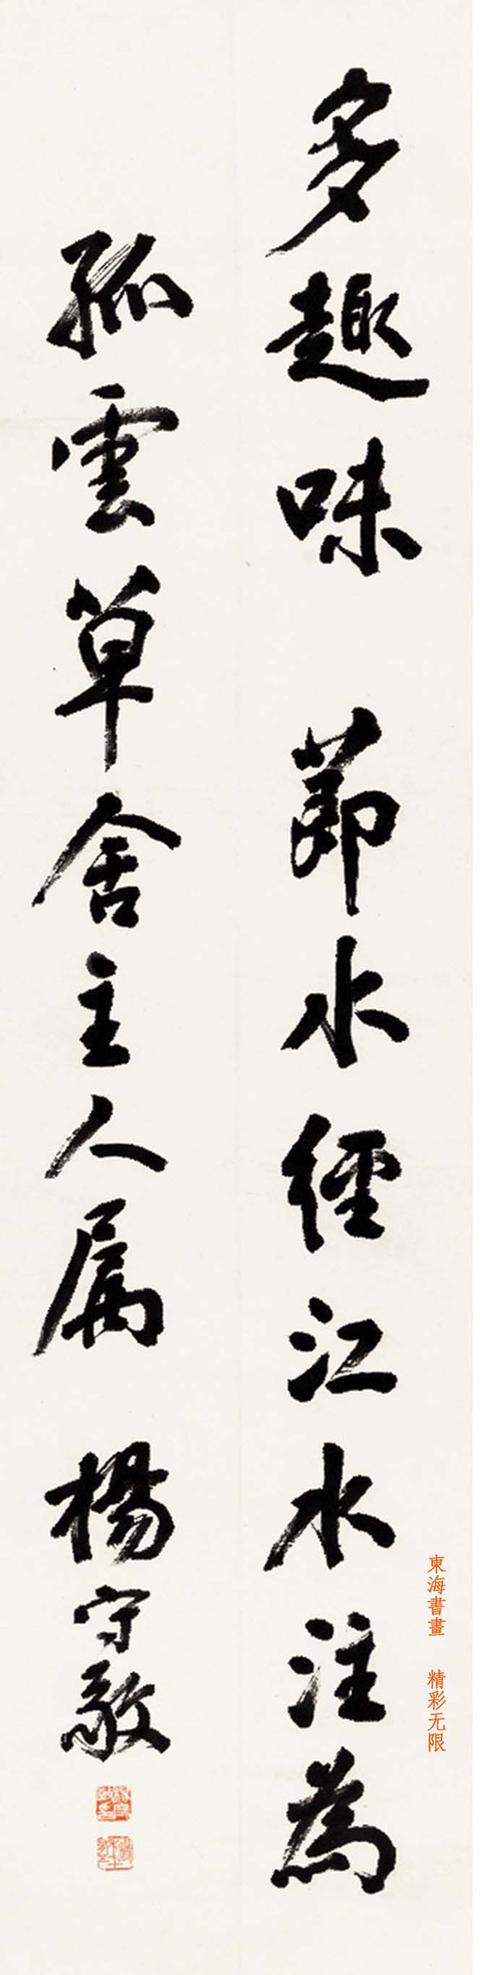 多趣味 節水經江水注為
孤雲草舍主人屬 楊守敬
東海書畫 精彩无限